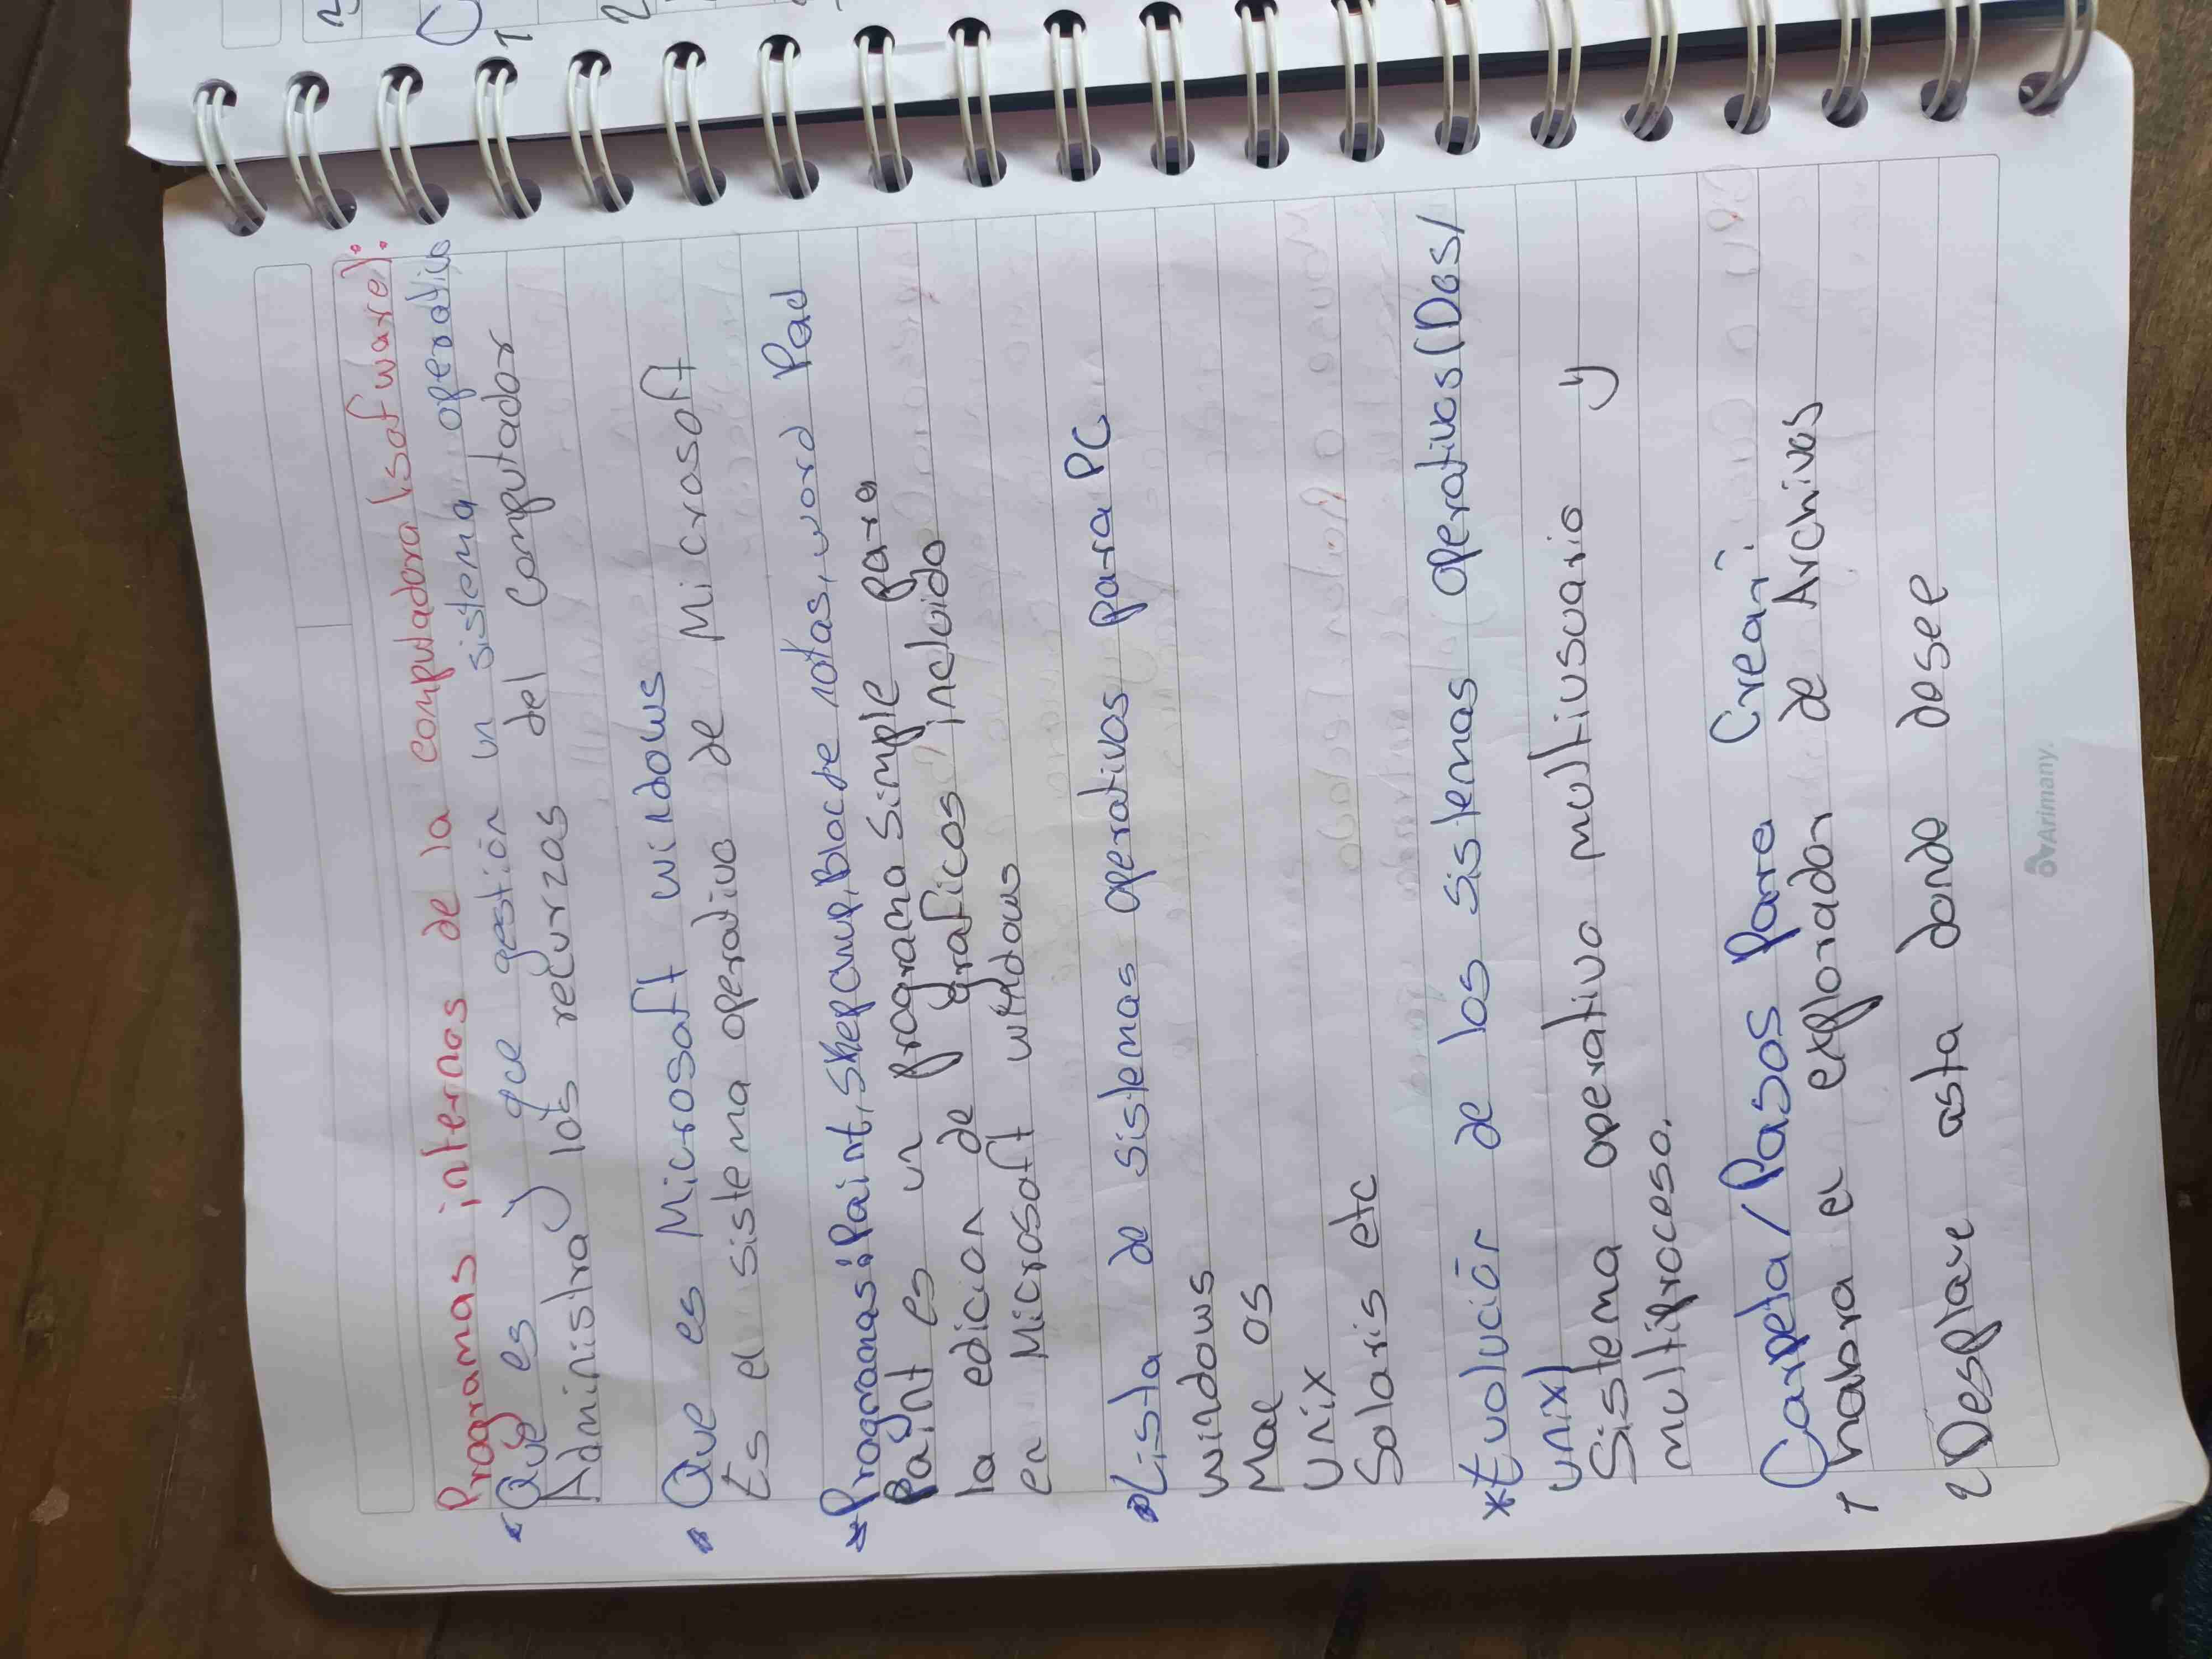 Programas internos de la computadora (sofware):
Que es y que gestión un sistema operativo
Administra los recurzas del Computador
Que es Microsoft windows
Es el sistema operativo de Microsoft
Programas: Paint, Block de notas, word Pad
Paint es un programa simple para
la edicion de graficos incluido
en Microsoft windows
Lista de sistemas operativos para PC
windows
Mac os
Unix
Solaris etc
*Evolución de los sistemas operativos (Dos/
unix)
Sistema operativo multiusuario y
multiproceso.
Carpeta/Pasos Para Crear:
1 habra el explorador de Archivos
2 Desplace asta donde desee
Arimany.